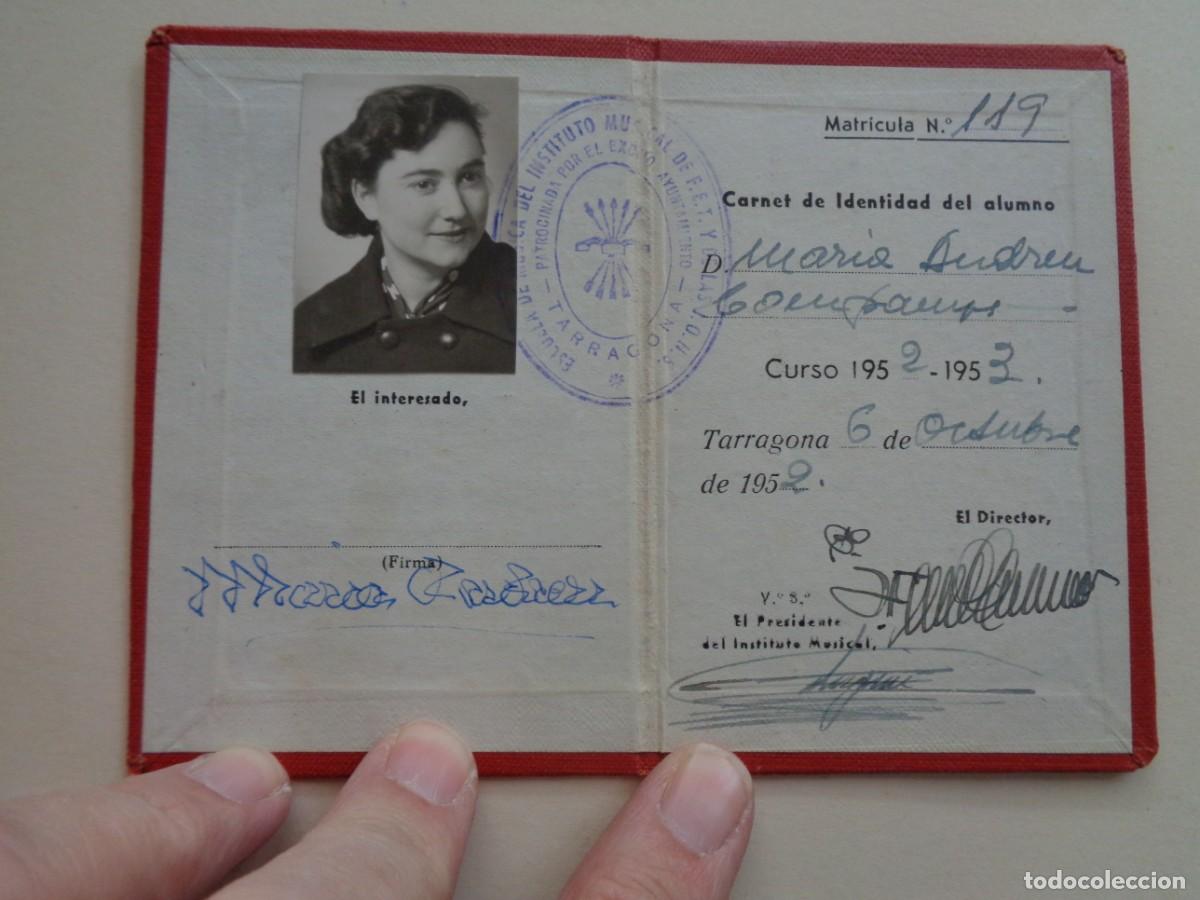 ESCUELA DE MUSICA DEL INSTITUTO MUSICAL DE F.E.T. Y DE LAS J.O.N.S.
PATROCINADA POR EL EXCMO. AYUNTAMIENTO
TARRAGONA
El interesado,
(Firma)
Maria Andreu
Matrícula N.º 119
Carnet de Identidad del alumno
D. Maria Andreu
Curso 1952-1953.
Tarragona 6 de Octubre
de 1952.
El Director,
V.º B.º
El Presidente
del Instituto Musical,
todocoleccion